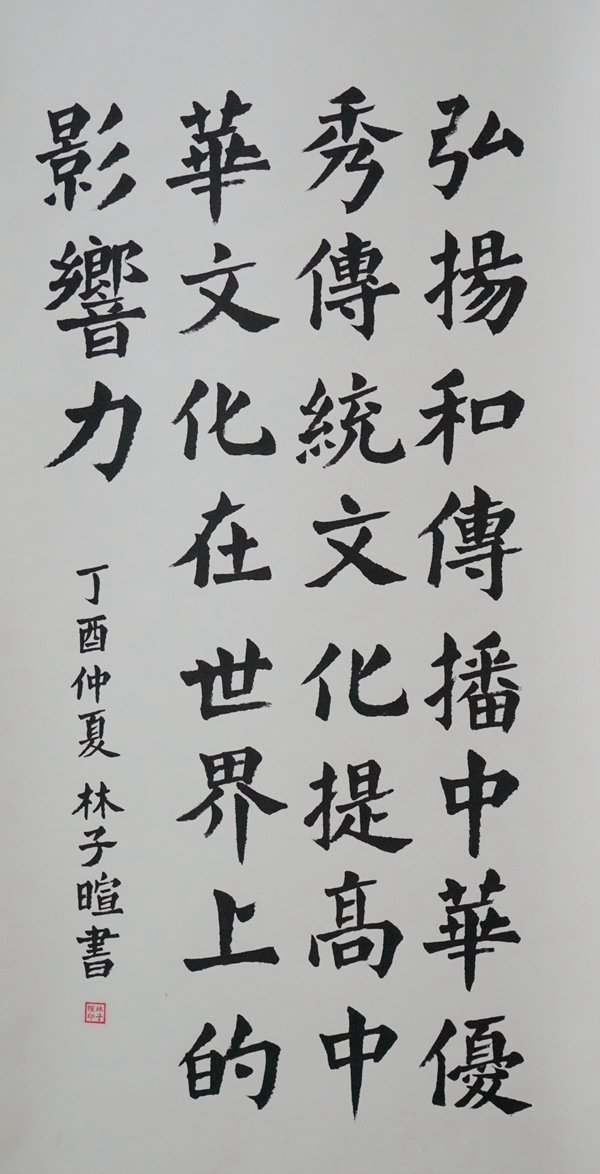 弘揚和傳播中華優
秀傳統文化提高中
華文化在世界上的
影響力
丁酉仲夏 林子暄書
林子暄印